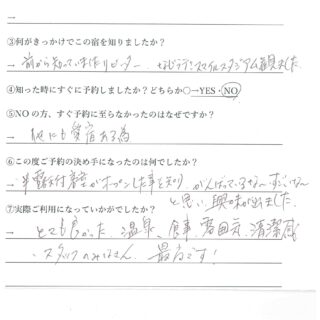 →
③何がきっかけでこの宿を知りましたか？
→ 前から知っていました リピーター
スマイルスタジアム観ました
④知った時にすぐに予約しましたか？どちらか○→YES・NO
⑤NOの方、すぐ予約に至らなかったのはなぜですか？
→ 他にも 宿ある為
⑥この度ご予約の決め手になったのは何でしたか？
→ 半露天付 がオープンした事を知り がんばっているな〜すごいな〜
と思い、興味が出ました。
⑦実際ご利用になっていかがでしたか？
→ とても良かった。温泉、食事、雰囲気、清潔感、
スタッフのみなさん、最高です！